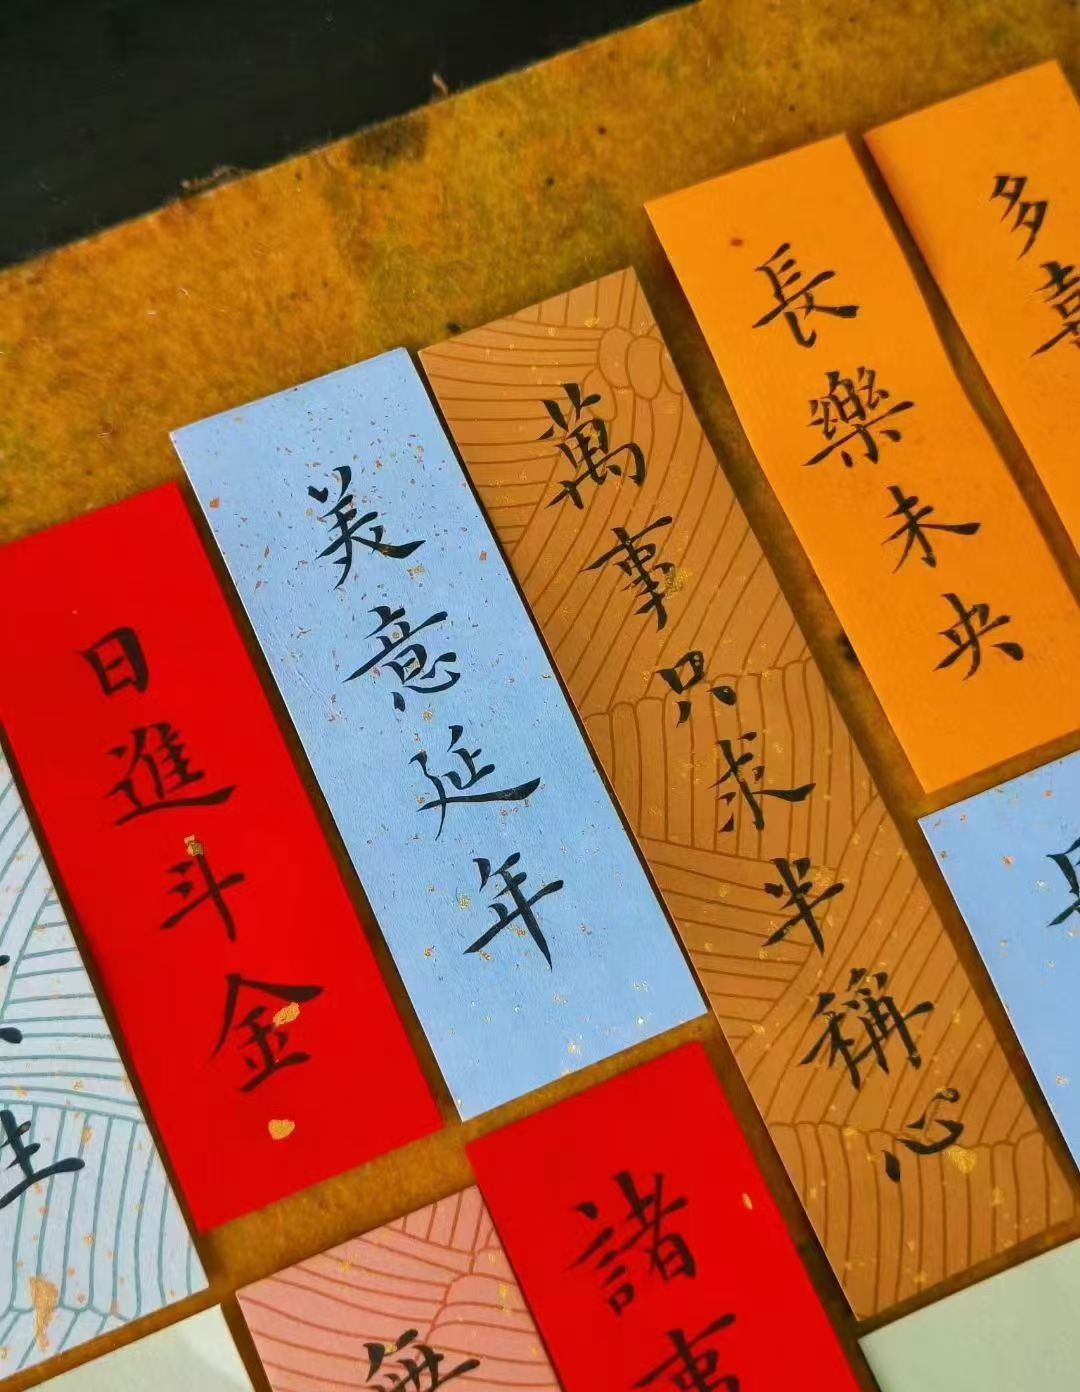 日進斗金
美意延年
萬事只求半稱心
長樂未央
多喜
生
諸事
無